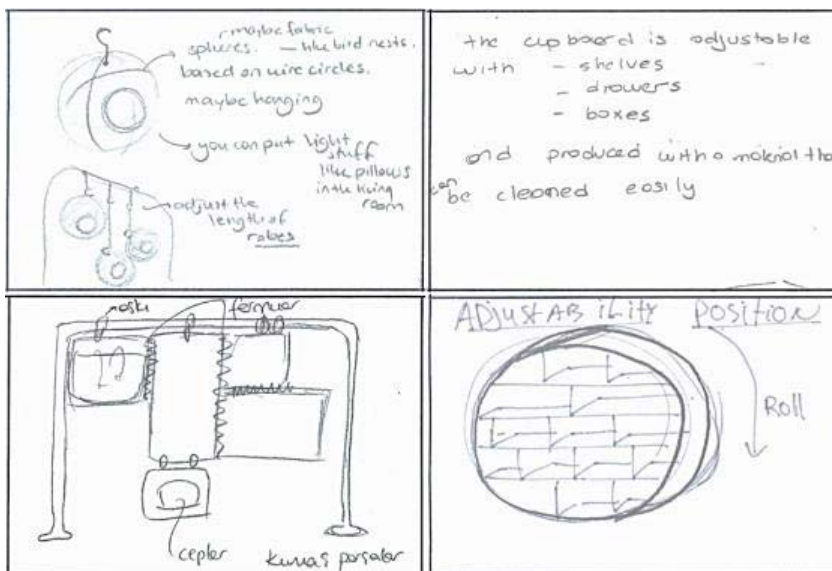 maybe fabric
spheres. — like bird nests.
based on wire circles.
maybe hanging
you can put light
stuff
like pillows
in the living
room
adjust the
length of
robes
the cupboard is adjustable
with - shelves
- drowers
- boxes
and produced with a material tha
can
be cleaned easily
askı
fermuar
cepler
kumaş parçalar
ADJUSTABILITY POSITION
Roll